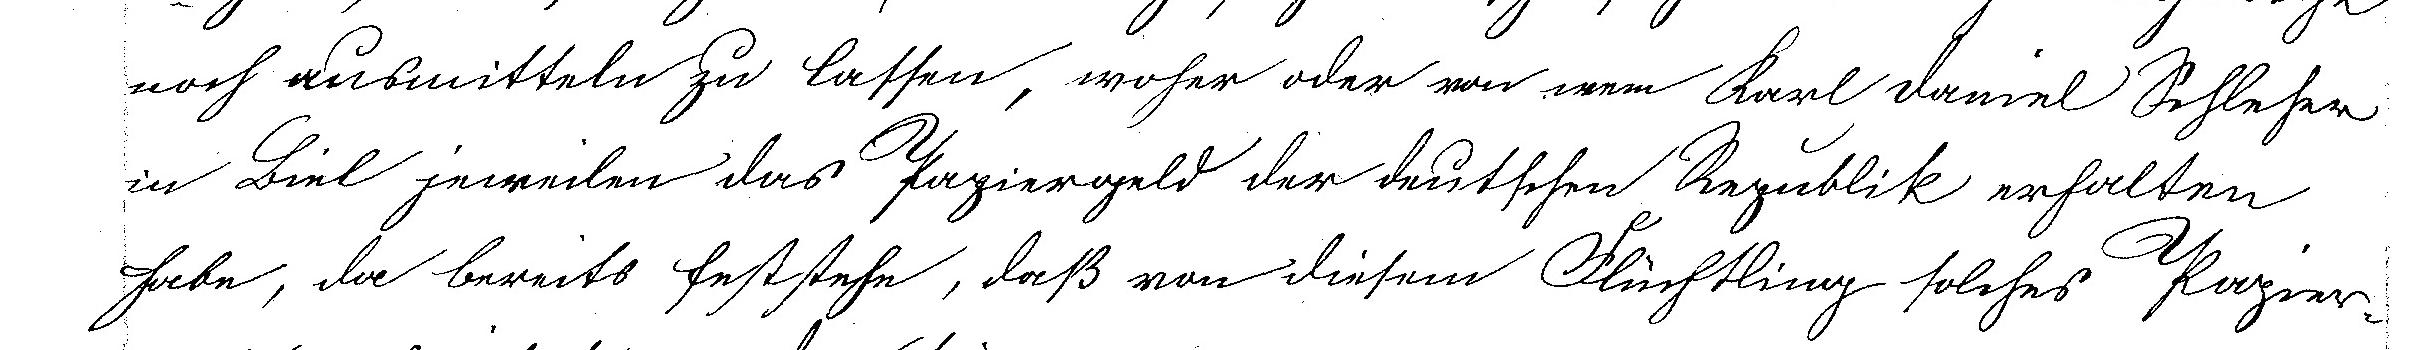 noch ausmitteln zu lassen, woher oder von wem Karl Daniel Schleher
in Biel jeweilen das Papiergeld der deutschen Republik erhalten
habe, da bereits feststehe, daß von diesem Flüchtling solches Papier-